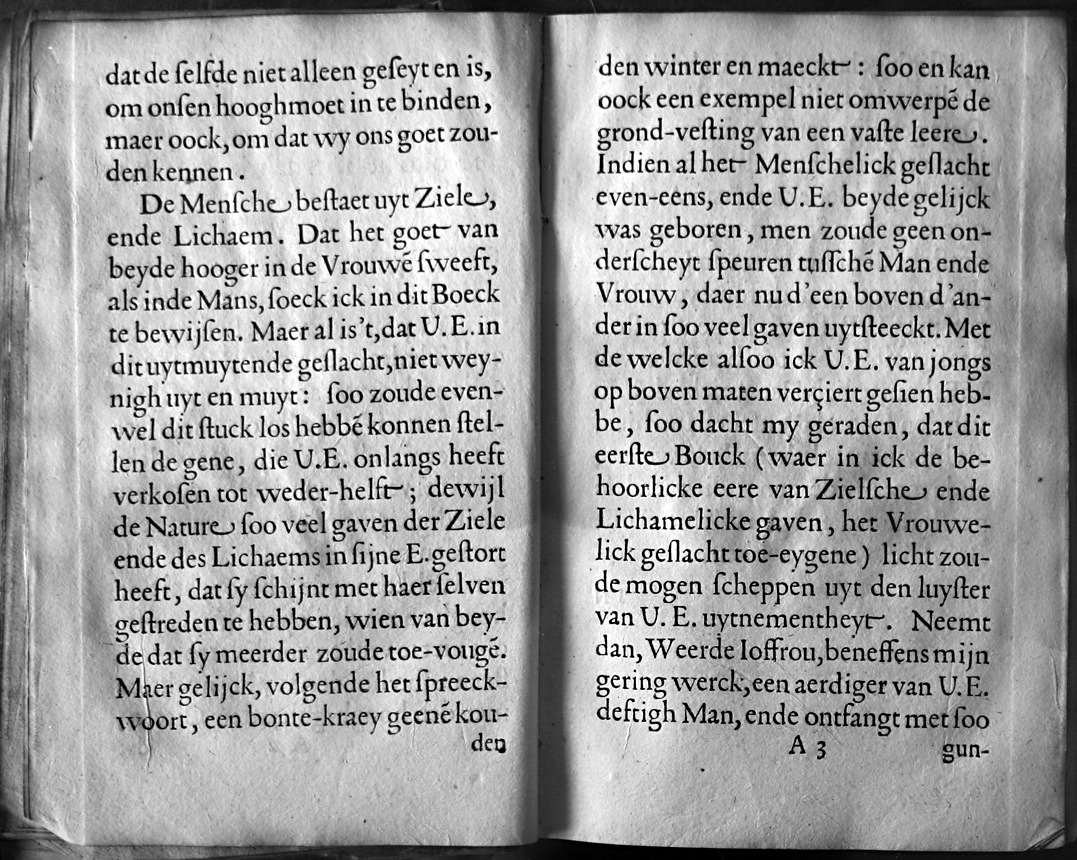 dat de ſelfde niet alleen geſeyt en is,
om onſen hooghmoet in te binden,
maer oock, om dat wy ons goet zou-
den kennen.
De Menſche beſtaet uyt Ziele,
ende Lichaem. Dat het goet van
beyde hooger in de Vrouwē ſweeft,
als inde Mans, ſoeck ick in dit Boeck
te bewijſen. Maer al is't, dat U.E. in
dit uytmuytende geſlacht, niet wey-
nigh uyt en muyt: ſoo zoude even-
wel dit ſtuck los hebbē konnen ſtel-
len de gene, die U.E. onlangs heeft
verkoſen tot weder-helft; dewijl
de Nature ſoo veel gaven der Ziele
ende des Lichaems in ſijne E. geſtort
heeft, dat ſy ſchijnt met haer ſelven
geſtreden te hebben, wien van bey-
de dat ſy meerder zoude toe-vougē.
Maer gelijck, volgende het ſpreeck-
woort, een bonte-kraey geenē kou-
den
den winter en maeckt: ſoo en kan
oock een exempel niet omwerpē de
grond-veſting van een vaſte leere.
Indien al het Menſchelick geſlacht
even-eens, ende U.E. beyde gelijck
was geboren, men zoude geen on-
derſcheyt ſpeuren tuſſchē Man ende
Vrouw, daer nu d'een boven d'an-
der in ſoo veel gaven uytſteeckt. Met
de welcke alſoo ick U.E. van jongs
op boven maten verçiert geſien heb-
be, ſoo dacht my geraden, dat dit
eerſte Bouck (waer in ick de be-
hoorlicke eere van Zielſche ende
Lichamelicke gaven, het Vrouwe-
lick geſlacht toe-eygene) licht zou-
de mogen ſcheppen uyt den luyſter
van U.E. uytnementheyt. Neemt
dan, Weerde Ioffrou, beneffens mijn
gering werck, een aerdiger van U.E.
deftigh Man, ende ontfangt met ſoo
A 3 gun-